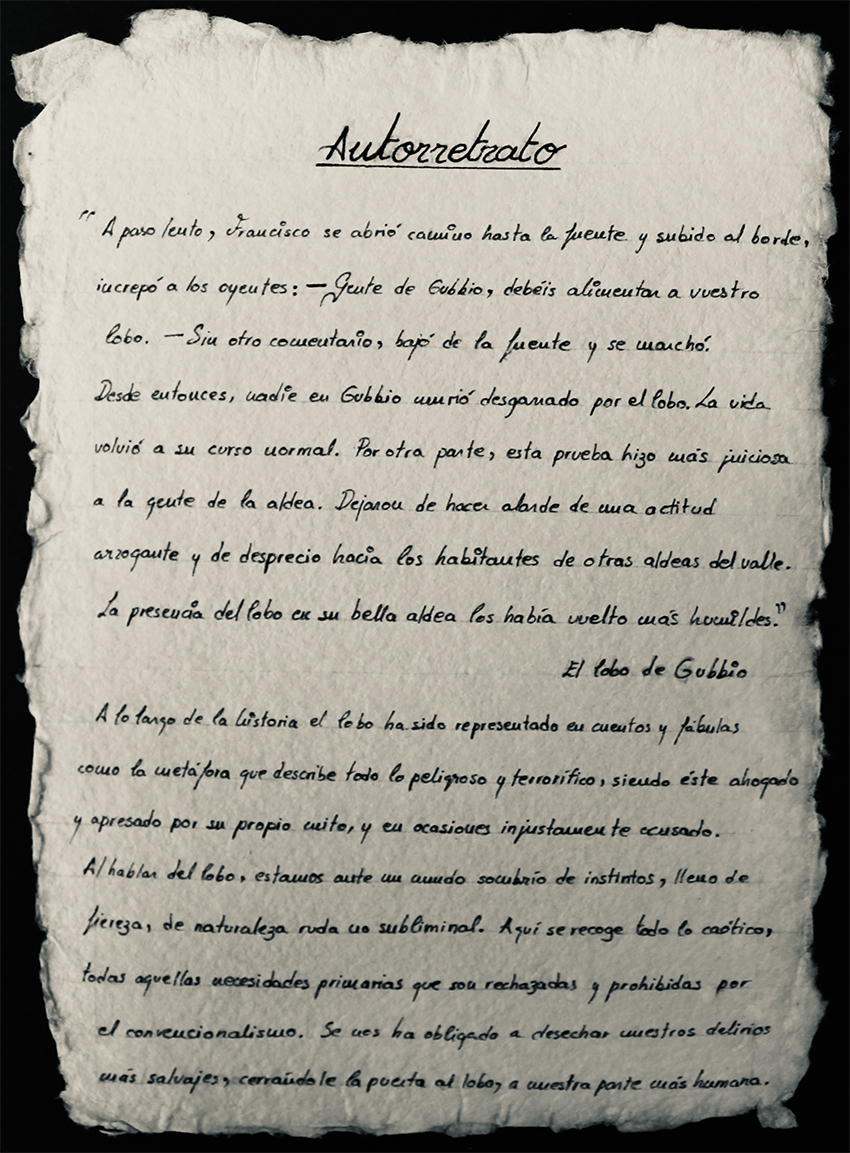 Autorretrato
"A paso lento, Francisco se abrió camino hasta la fuente y subido al borde,
increpó a los oyentes: — Gente de Gubbio, debéis alimentar a vuestro
lobo. — Sin otro comentario, bajó de la fuente y se marchó.
Desde entonces, nadie en Gubbio murió desgarrado por el lobo. La vida
volvió a su curso normal. Por otra parte, esta prueba hizo más juiciosa
a la gente de la aldea. Dejaron de hacer alarde de una actitud
arrogante y de desprecio hacia los habitantes de otras aldeas del valle.
La presencia del lobo en su bella aldea los había vuelto más humildes."
El lobo de Gubbio
A lo largo de la historia el lobo ha sido representado en cuentos y fábulas
como la metáfora que describe todo lo peligroso y terrorífico, siendo éste ahogado
y apresado por su propio mito, y en ocasiones injustamente acusado.
Al hablar del lobo, estamos ante un mundo sombrío de instintos, lleno de
fiereza, de naturaleza ruda no subliminal. Aquí se recoge todo lo caótico,
todas aquellas necesidades primarias que son rechazadas y prohibidas por
el convencionalismo. Se nos ha obligado a desechar nuestros delirios
más salvajes, cerrándole la puerta al lobo, a nuestra parte más humana.